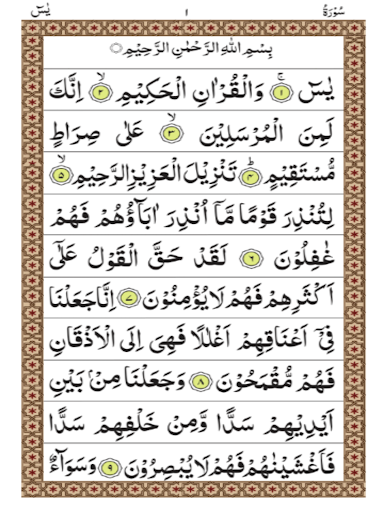 سُوْرَةُ ١ يٰسٓ
بِسْمِ اللّٰهِ الرَّحْمٰنِ الرَّحِيْمِ ○
يٰسٓ ۚ﴿۱﴾ وَالْقُرْاٰنِ الْحَكِيْمِ ۙ﴿۲﴾ اِنَّكَ
لَمِنَ الْمُرْسَلِيْنَ ۙ﴿۳﴾ عَلٰى صِرَاطٍ
مُّسْتَقِيْمٍ ؕ﴿۴﴾ تَنْزِيْلَ الْعَزِيْزِ الرَّحِيْمِ ۙ﴿۵﴾
لِتُنْذِرَ قَوْمًا مَّاۤ اُنْذِرَ اٰبَآؤُهُمْ فَهُمْ
غٰفِلُوْنَ ﴿۶﴾ لَقَدْ حَقَّ الْقَوْلُ عَلٰۤى
اَكْثَرِهِمْ فَهُمْ لَا يُؤْمِنُوْنَ ﴿۷﴾ اِنَّا جَعَلْنَا
فِيْۤ اَعْنَاقِهِمْ اَغْلٰلًا فَهِيَ اِلَى الْاَذْقَانِ
فَهُمْ مُّقْمَحُوْنَ ﴿۸﴾ وَجَعَلْنَا مِنْۢ بَيْنِ
اَيْدِيْهِمْ سَدًّا وَّمِنْ خَلْفِهِمْ سَدًّا
فَاَغْشَيْنٰهُمْ فَهُمْ لَا يُبْصِرُوْنَ ﴿۹﴾ وَسَوَآءٌ